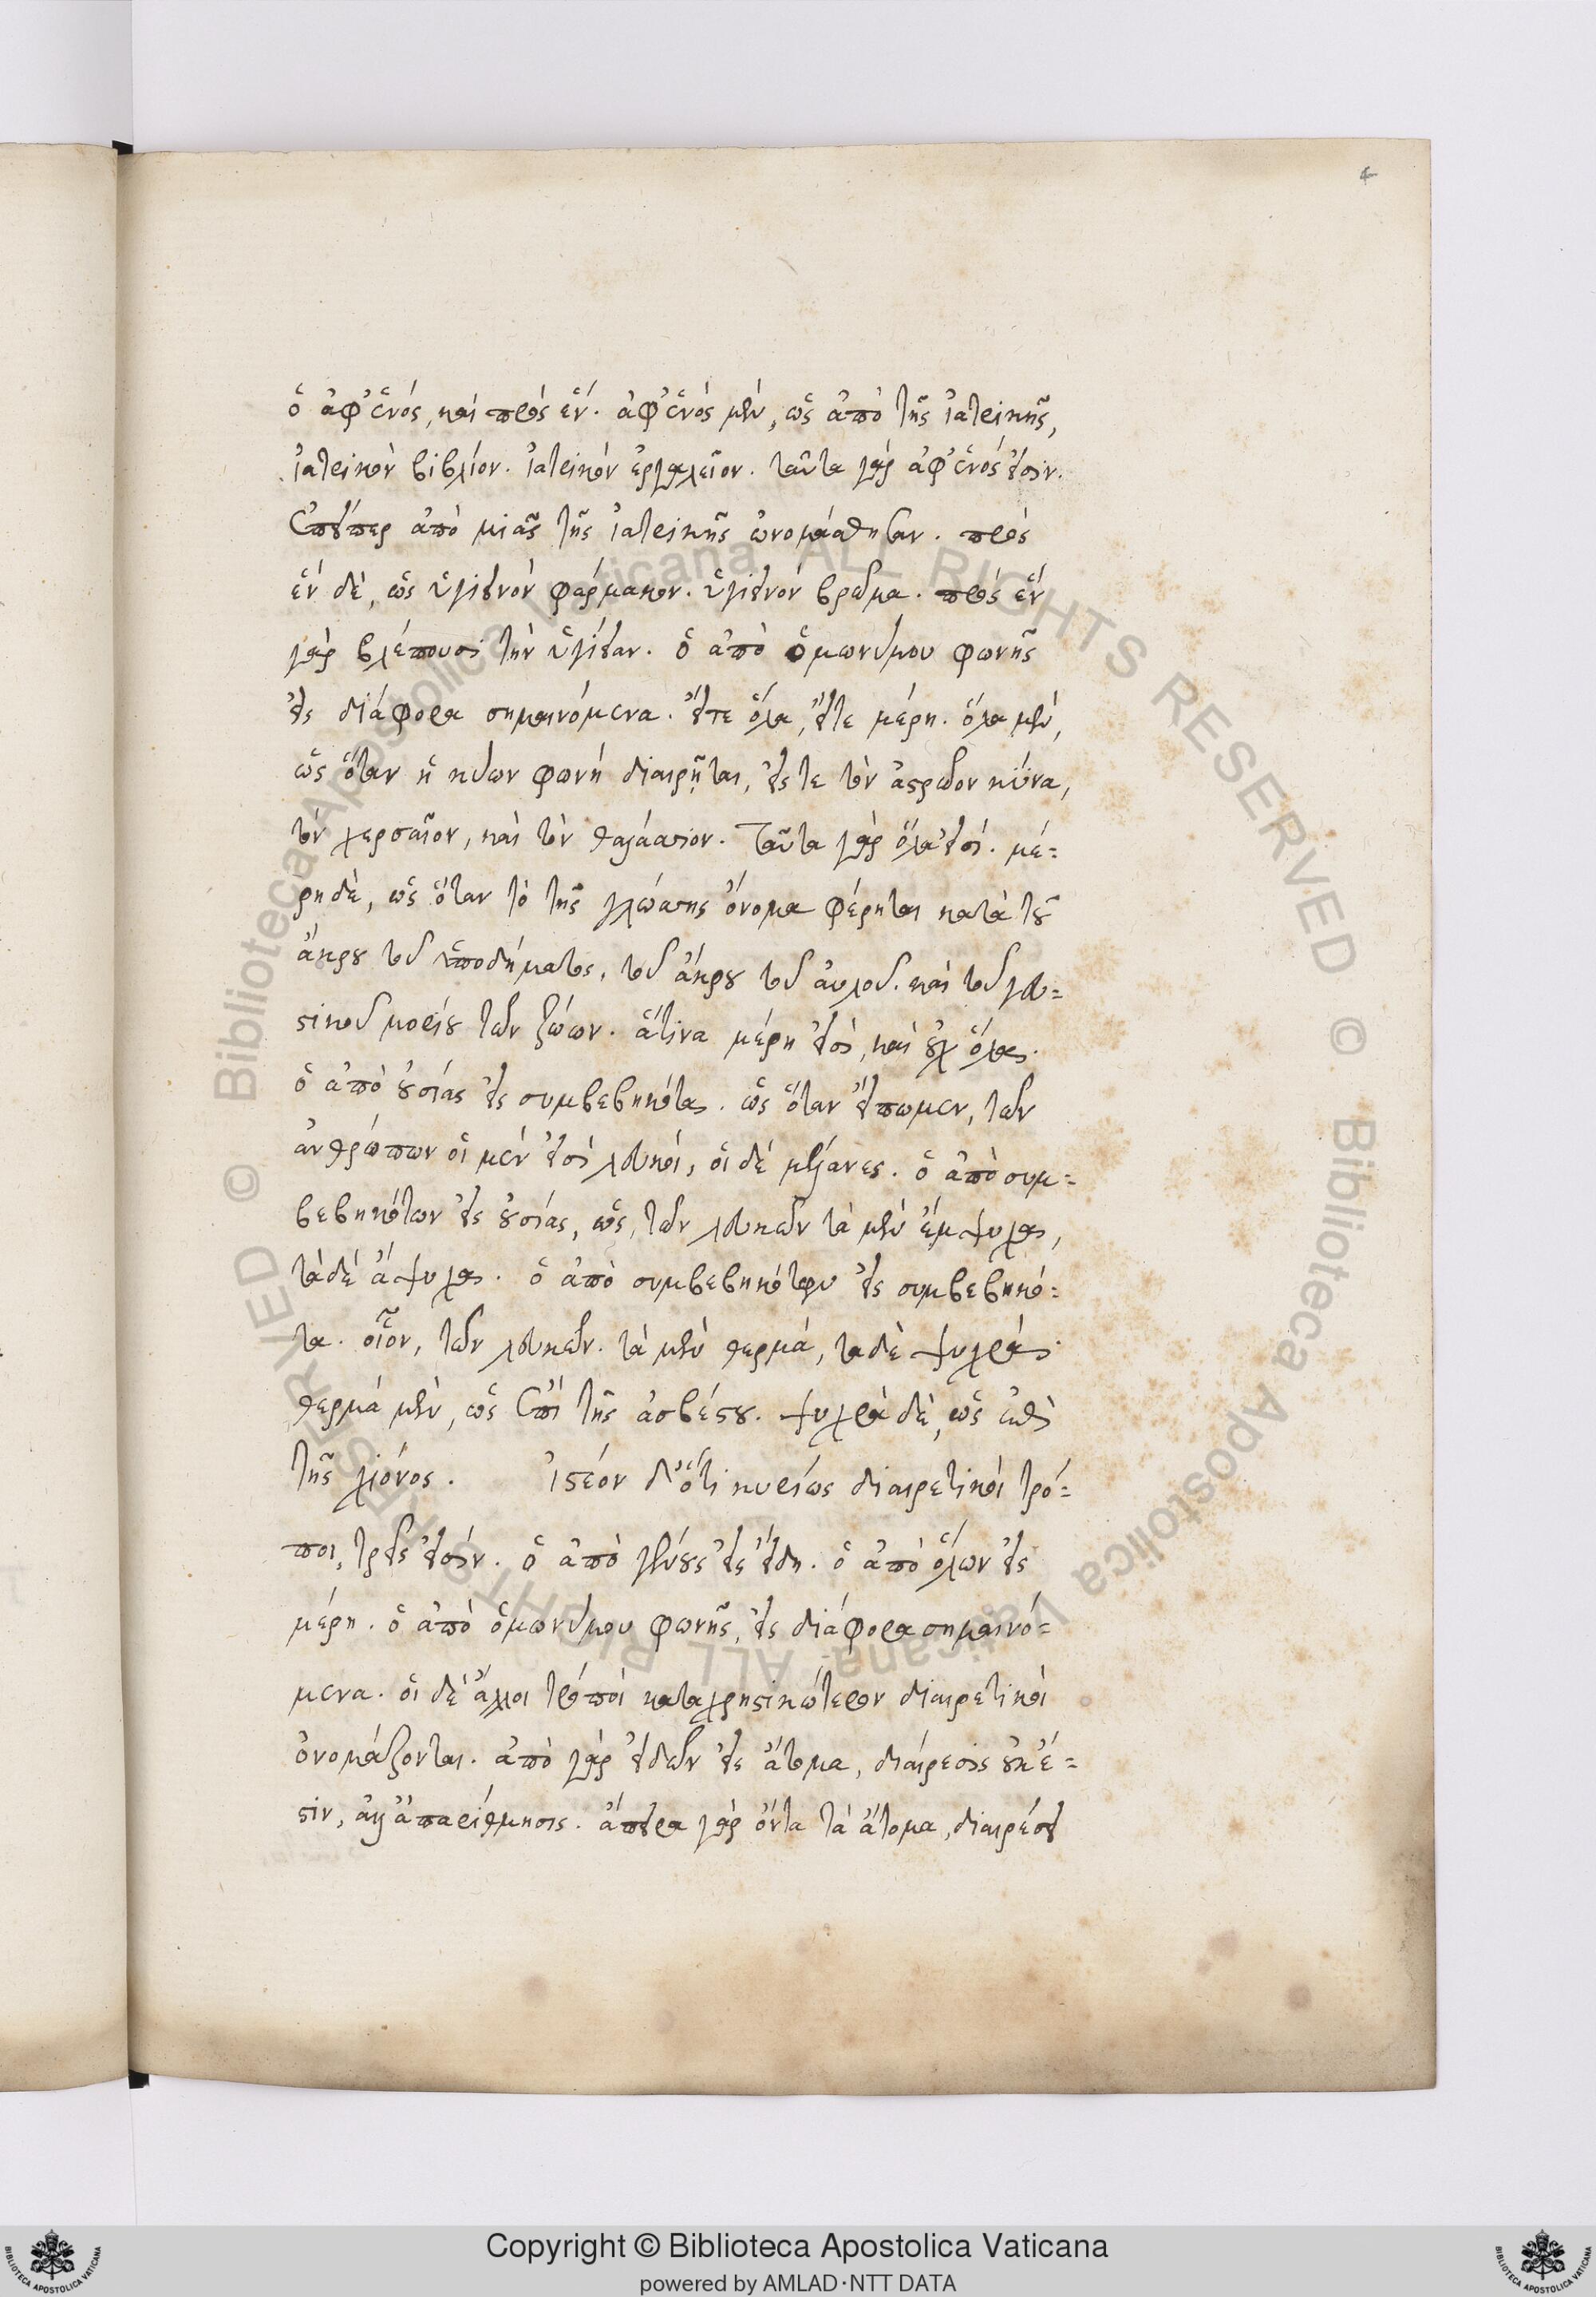 4
ὁ ἀφ' ἑνός, καὶ πρὸς ἕν. ἀφ' ἑνὸς μὲν, ὡς ἀπὸ τῆς ἰατρικῆς,
ἰατρικὸν βιβλίον. ἰατρικὸν ἐργαλεῖον. ταῦτα γὰρ ἀφ' ἑνός εἰσιν.
ἐπείπερ ἀπὸ μιᾶς τῆς ἰατρικῆς ὠνομάσθησαν. πρὸς
ἓν δὲ, ὡς ὑγιεινὸν φάρμακον. ὑγιεινὸν βρῶμα. πρὸς ἓν
γὰρ βλέπουσι τὴν ὑγίειαν. ὁ ἀπὸ ὁμωνύμου φωνῆς
εἰς διάφορα σημαινόμενα. εἴτε ὅλα, εἴτε μέρη. ὅλα μὲν,
ὡς ὅταν ἡ κύων φωνὴ διαιρῆται, εἴς τε τὸν ἀστρῶον κύνα,
τὸν χερσαῖον, καὶ τὸν θαλάσσιον. Ταῦτα γὰρ ὅλα εἰσί. μέ=
ρη δὲ, ὡς ὅταν τὸ τῆς γλώσσης ὄνομα φέρηται κατὰ τοῦ
ἄκρου τοῦ ὑποδήματος, τοῦ ἄκρου τοῦ αὐλοῦ. καὶ τοῦ γευ=
στικοῦ μορίου τῶν ζώων. ἅτινα μέρη εἰσὶ, καὶ οὐχ ὅλα.
ὁ ἀπὸ οὐσίας εἰς συμβεβηκότα. ὡς ὅταν εἴπωμεν, τῶν
ἀνθρώπων οἱ μέν εἰσὶ λευκοὶ, οἱ δὲ μέλανες. ὁ ἀπὸ συμ=
βεβηκότων εἰς οὐσίας, ὡς, τῶν λευκῶν τὰ μὲν ἔμψυχα,
τὰ δὲ ἄψυχα. ὁ ἀπὸ συμβεβηκότων εἰς συμβεβηκό=
τα. οἷον, τῶν λευκῶν. τὰ μὲν θερμά, τα δὲ ψυχρά.
θερμὰ μὲν, ὡς ἐπὶ τῆς ἀσβέστου. ψυχρὰ δὲ, ὡς ἐπὶ
τῆς χιόνος. ἰστέον δ' ὅτι κυρίως διαιρετικοὶ τρό=
ποι, τρεῖς εἰσίν. ὁ ἀπὸ γένους εἰς εἴδη. ὁ ἀπὸ ὅλων εἰς
μέρη. ὁ ἀπὸ ὁμωνύμου φωνῆς, εἰς διάφορα σημαινό=
μενα. οἱ δὲ ἄλλοι τρόποι καταχρηστικώτερον διαιρετικοὶ
ὀνομάζονται. ἀπὸ γὰρ εἰδῶν εἰς ἄτομα, διαίρεσις οὐκ ἔ=
στιν, ἀλλ' ἀπαρίθμησις. ἄπειρα γὰρ ὄντα τὰ ἄτομα, διαιρέσει
Copyright © Biblioteca Apostolica Vaticana
powered by AMLAD·NTT DATA